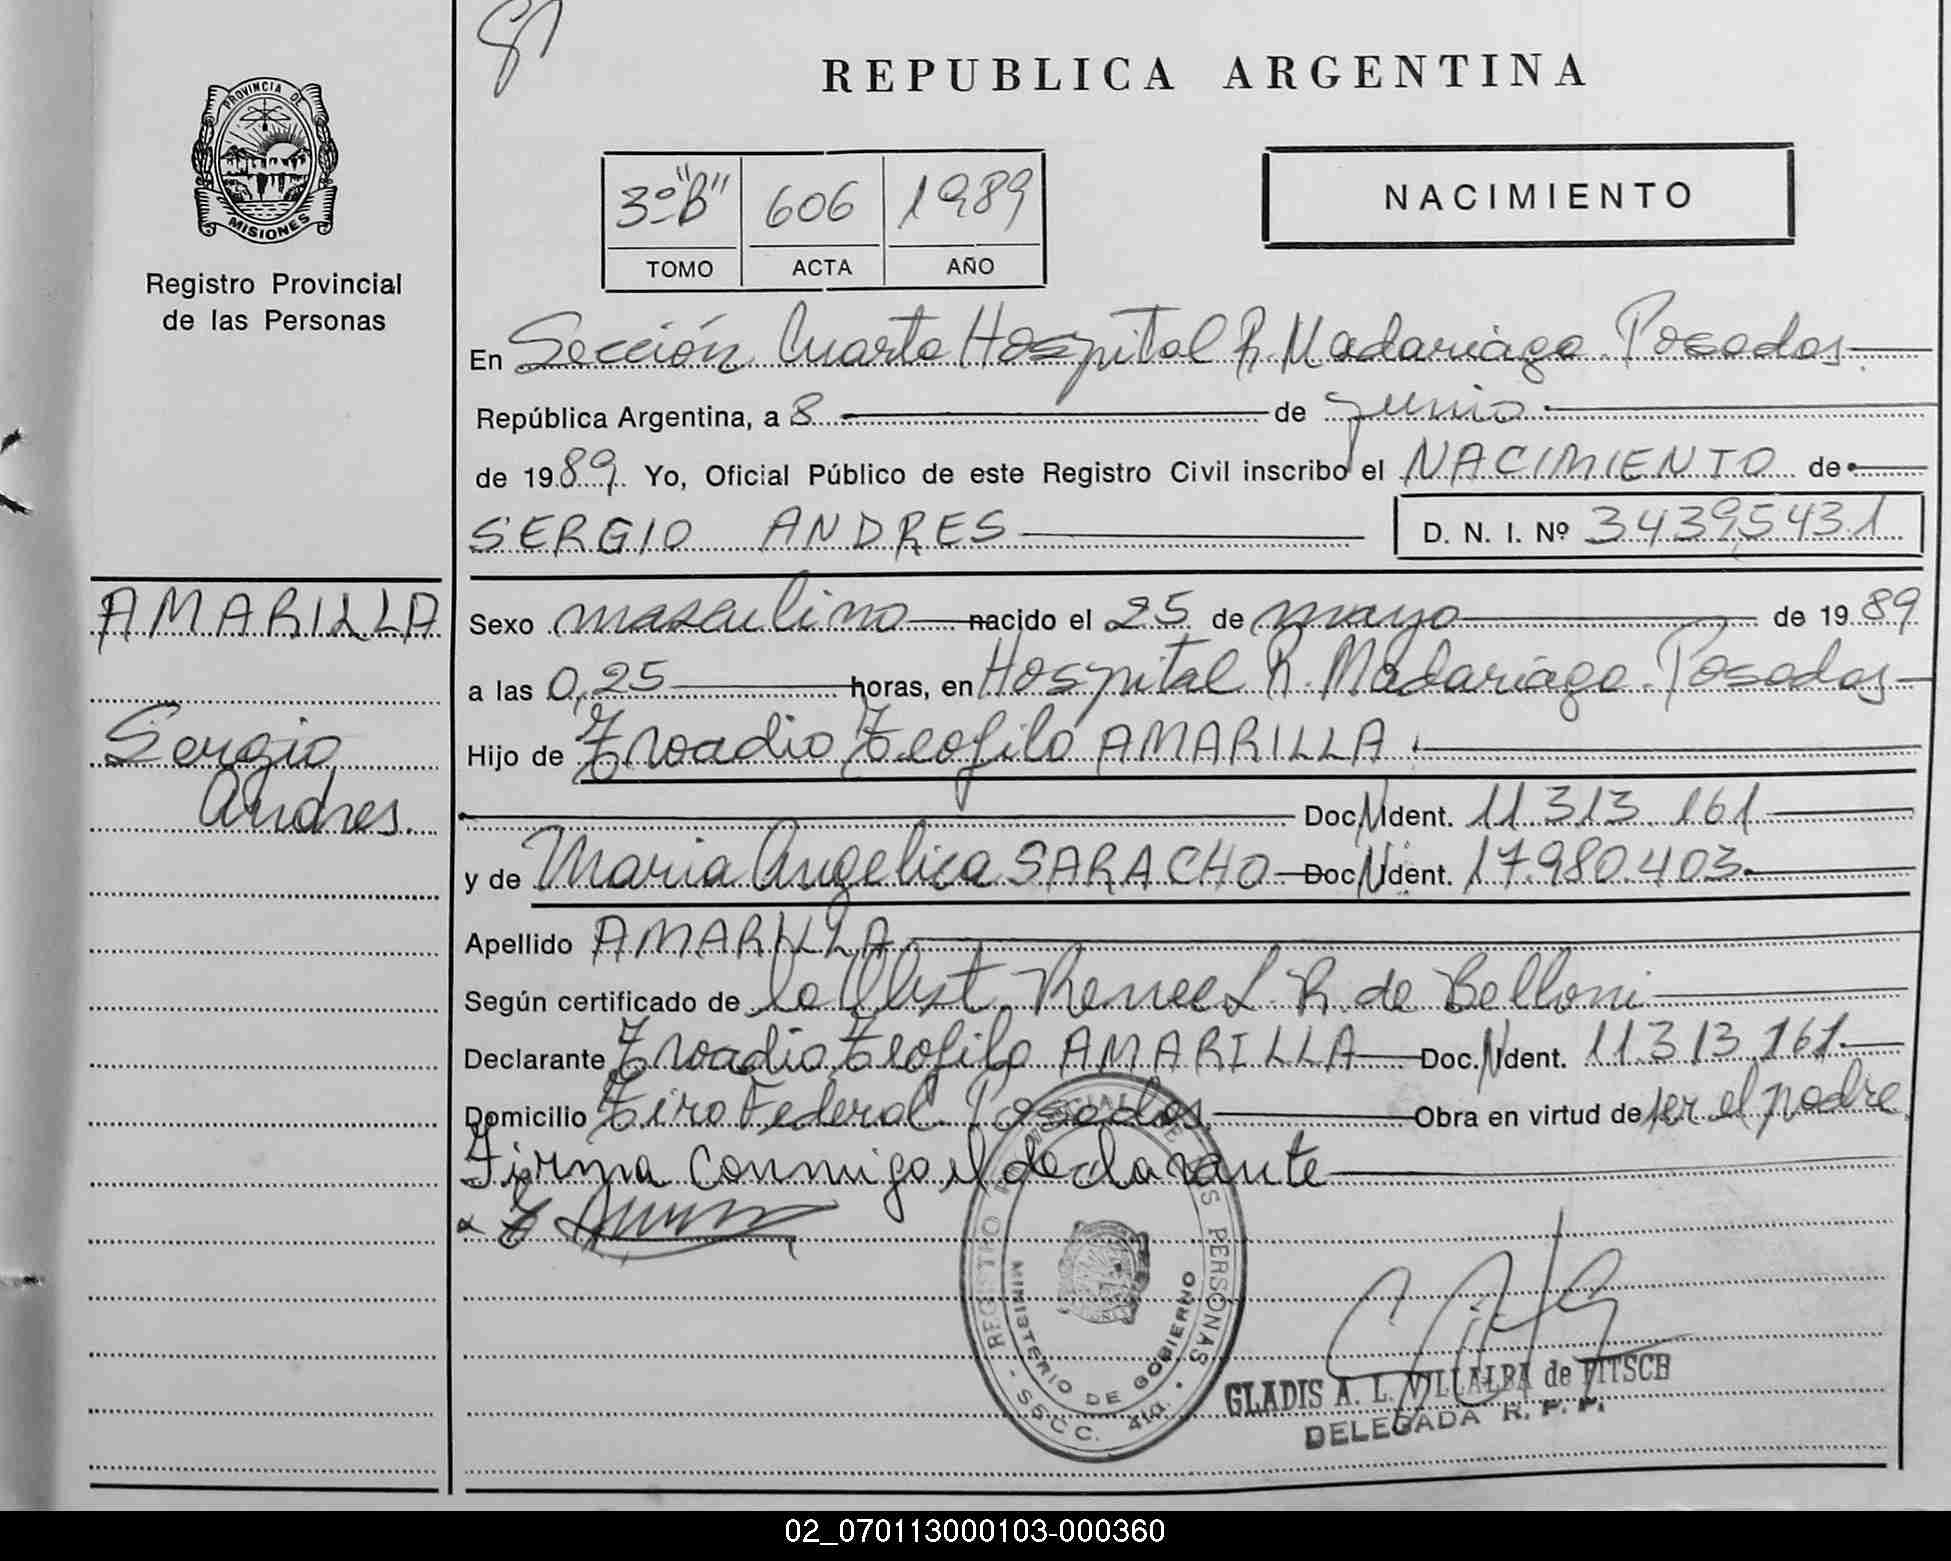 REPUBLICA ARGENTINA
PROVINCIA DE
MISIONES
Registro Provincial
de las Personas
3º "B" 606 1989
TOMO ACTA AÑO
NACIMIENTO
En Sección Cuarta Hospital R. Madariaga. Posadas.
República Argentina, a 8 de junio
de 1989. Yo, Oficial Público de este Registro Civil inscribo el NACIMIENTO de
SERGIO ANDRES
D. N. I. Nº 34395431
AMARILLA
Sergio
Andres.
Sexo masculino nacido el 25 de mayo de 1989
a las 0,25 horas, en Hospital R. Madariaga. Posadas
Hijo de Troadio Teofilo AMARILLA
Doc. N. Ident. 11.313.161
y de Maria Angelica SARACHO Doc. N. Ident. 17.980.403
Apellido AMARILLA
Según certificado de la Obst. Renee L. R. de Belloni
Declarante Troadio Teofilo AMARILLA Doc. N. Ident. 11.313.161
Domicilio Tiro Federal. Posadas. Obra en virtud de ser el padre
Firma conmigo el declarante
REGISTRO PERSONAS
MINISTERIO DE GOBIERNO
SECC. 4ta.
GLADIS A. L. VILLALBA de FITSCH
DELEGADA R. P. P.
02_070113000103-000360